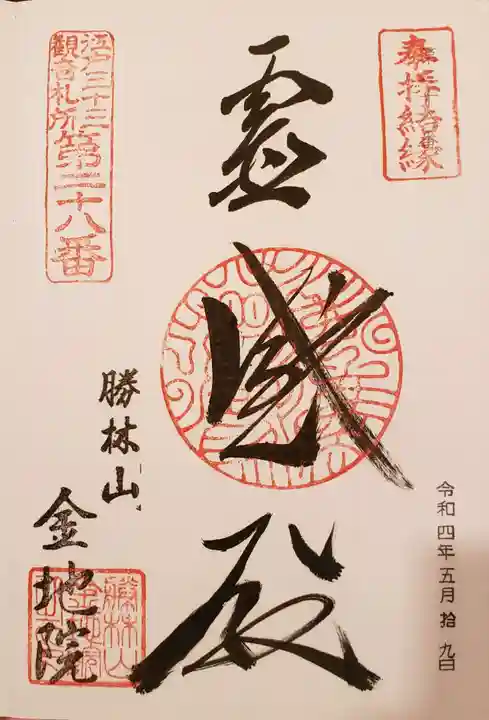 奉拝結縁
霊感殿
令和四年五月拾九日
江戸三十三
観音札所
第二十八番
勝林山
金地院
勝林山